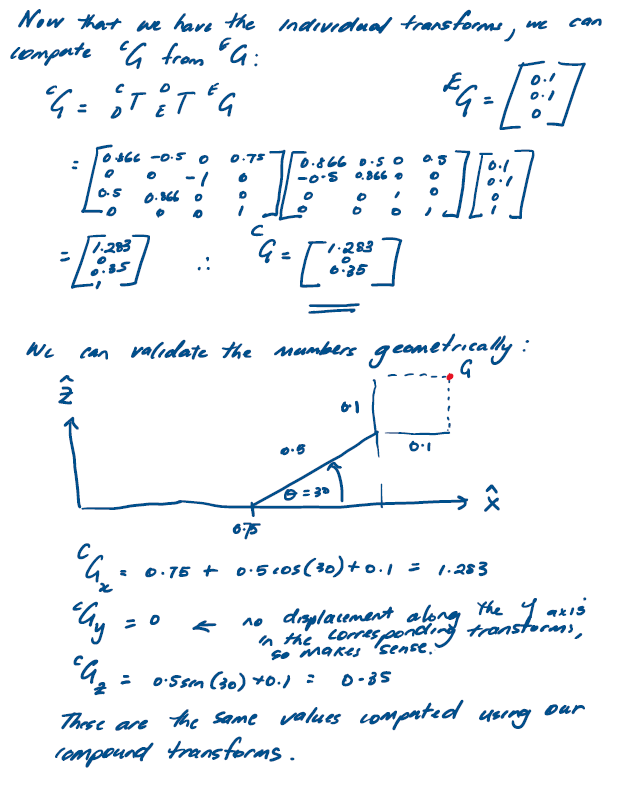 Now that we have the individual transforms, we can
compute ᶜG from ᴱG:
ᶜG = ᶜ_D T ᴰ_E T ᴱG
ᴱG = [0.1
0.1
0]
= [0.866 -0.5 0 0.75] [0.866 0.5 0 0.5] [0.1]
[0 0 -1 0] [-0.5 0.866 0 0] [0.1]
[0.5 0.866 0 0] [0 0 1 0] [0]
[0 0 0 1] [0 0 0 1] [1]
= [1.283
0
0.35
1]
∴ ᶜG = [1.283
0
0.35]
We can validate the numbers geometrically:
Ẑ
G
0.1
0.5
0.1
θ = 30
X̂
0.75
ᶜGₓ = 0.75 + 0.5cos(30) + 0.1 = 1.283
ᶜG_y = 0 ← no displacement along the Y axis
in the corresponding transforms,
so makes sense.
ᶜG_z = 0.5sin(30) + 0.1 = 0.35
These are the same values computed using our
compound transforms.